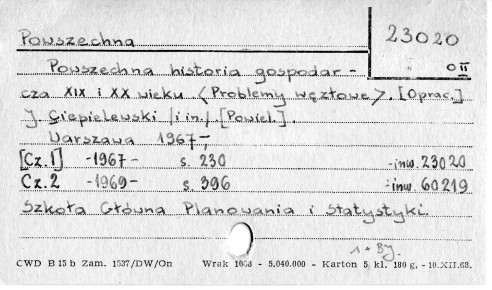 Powszechna
23020
O II
Powszechna historia gospodar-
cza XIX i XX wieku <Problemy węzłowe>. [Oprac.]
J. Ciepielewski /i in./ [Powiel.].
Warszawa 1967-,
[Cz.1] -1967- s. 230 -inw. 23020
Cz.2 -1969- s. 396 -inw. 60219
Szkoła Główna Planowania i Statystyki.
CWD B 15 b Zam. 1537/DW/On Wrak 1068 - 5.040.000 - Karton 5 kl. 180 g. - 10.XII.68.